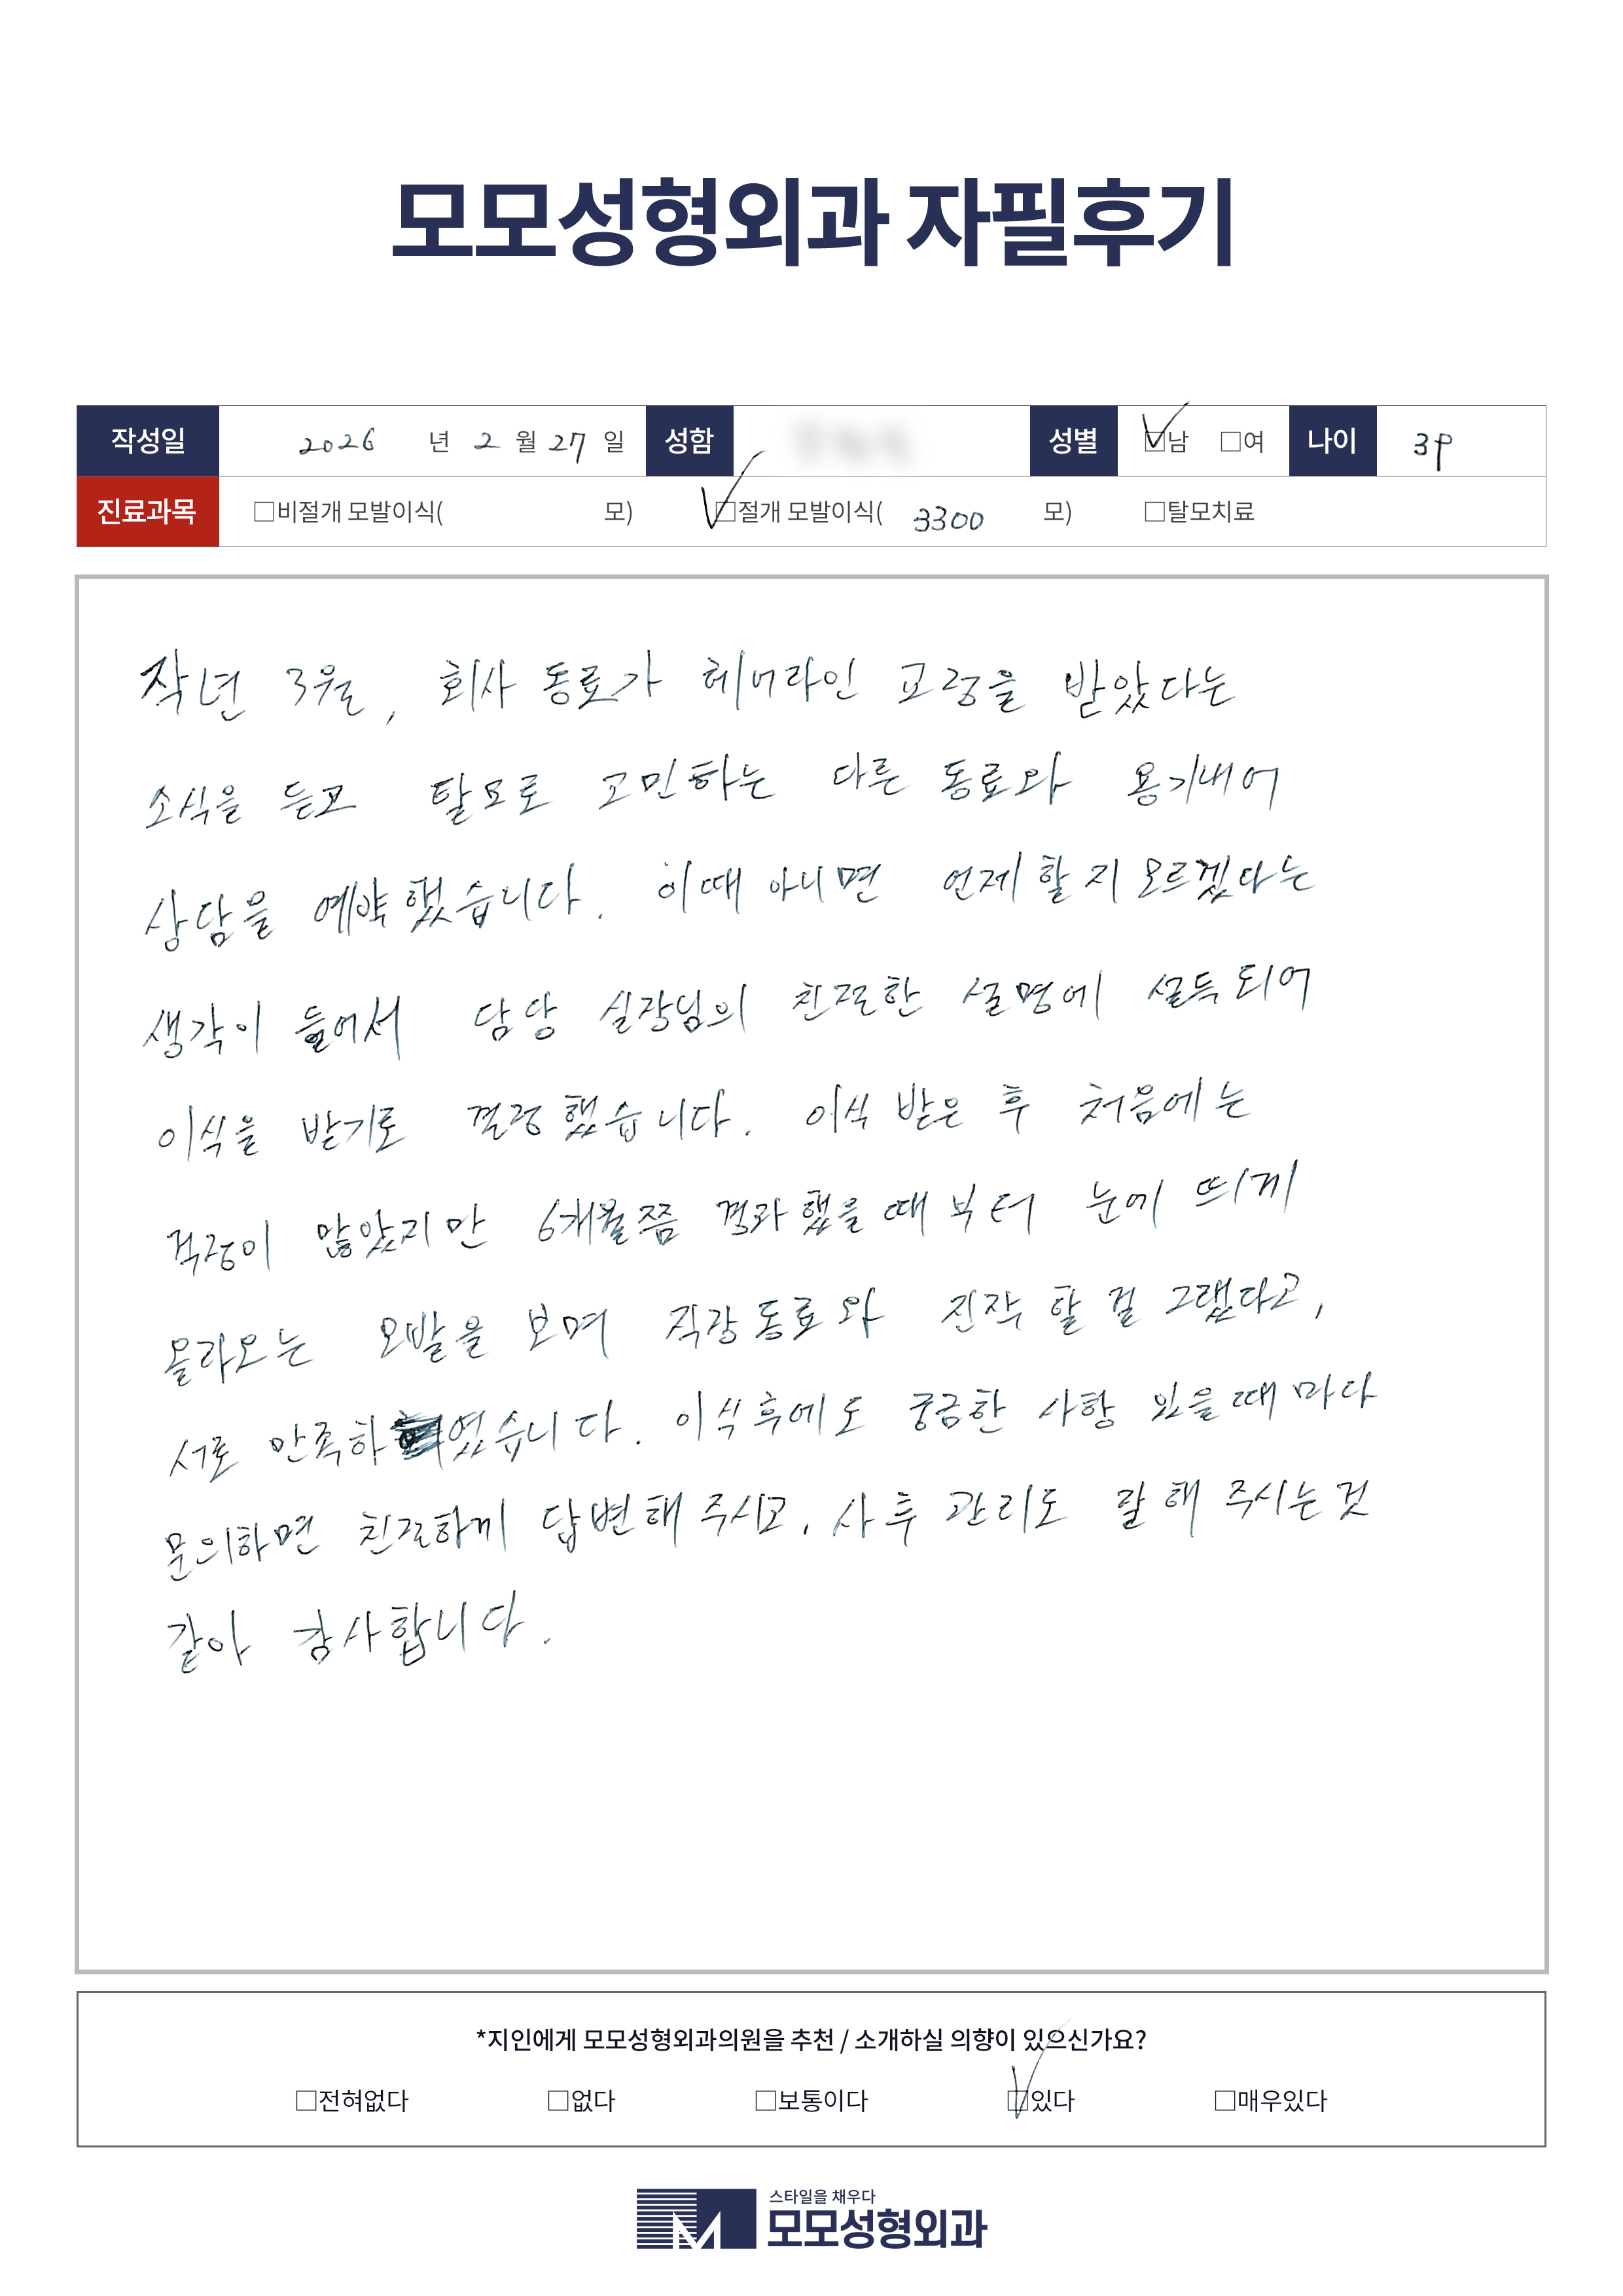 모모성형외과 자필후기
작성일 2026 년 2 월 27 일 성함 성별 ☑남 □여 나이 39
진료과목 □비절개 모발이식( 모) ☑절개 모발이식( 3300 모) □탈모치료
작년 3월, 회사 동료가 헤어라인 교정을 받았다는
소식을 듣고 탈모로 고민하는 다른 동료와 용기내어
상담을 예약했습니다. 이때 아니면 언제 할지 모르겠다는
생각이 들어서 담당 실장님의 친절한 설명에 설득되어
이식을 받기로 결정했습니다. 이식 받은 후 처음에는
걱정이 많았지만 6개월쯤 경과했을 때부터 눈에 띄게
올라오는 모발을 보며 직장동료와 진작 할 걸 그랬다고,
서로 만족하였습니다. 이식후에도 궁금한 사항 있을때마다
문의하면 친절하게 답변해 주시고, 사후 관리도 잘 해 주시는것
같아 감사합니다.
*지인에게 모모성형외과의원을 추천 / 소개하실 의향이 있으신가요?
□전혀없다 □없다 □보통이다 ☑있다 □매우있다
스타일을 채우다
모모성형외과